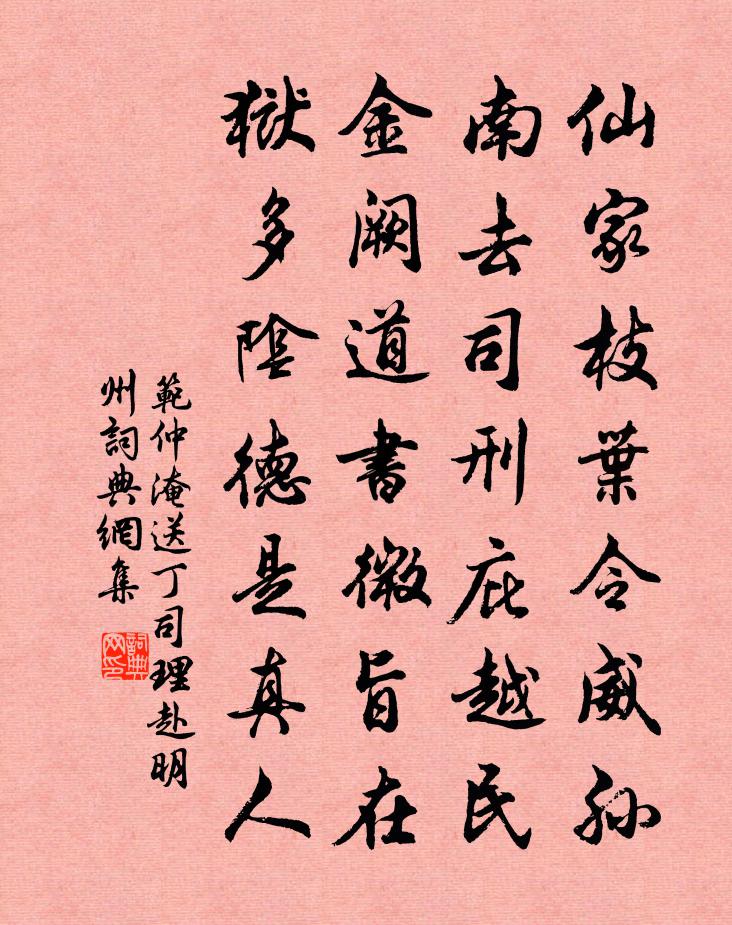 仙家枝葉令威孫
南去司刑庇越民
金阙道書微旨在
獄多陰德是真人
範仲淹送丁司理赴明
州詞典網集
詞典网印